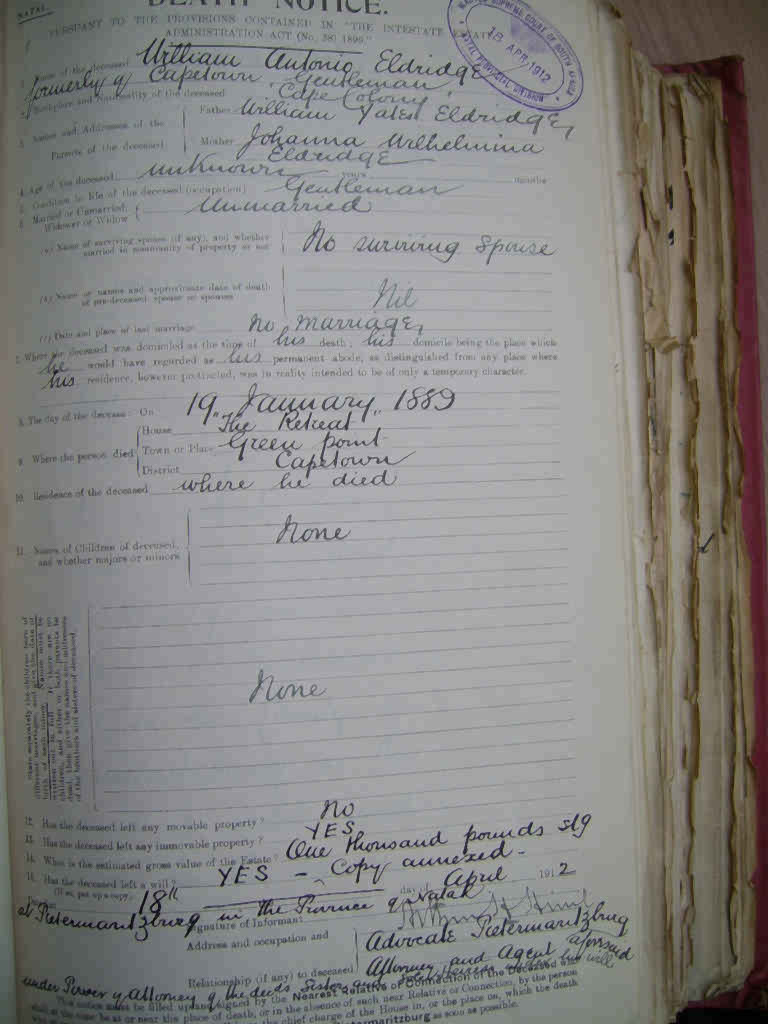 NATAL.
DEATH NOTICE.
PURSUANT TO THE PROVISIONS CONTAINED IN "THE INTESTATE ESTATES
ADMINISTRATION ACT (No. 38) 1896."
MASTER SUPREME COURT OF SOUTH AFRICA
18 APR 1912
NATAL PROVINCIAL DIVISION
1. Name of the deceased William Antonio Eldridge
formerly of Capetown Gentleman
2. Birthplace and Nationality of the deceased Cape Colony
3. Names and Addresses of the Parents of the deceased
Father William Yates Eldridge,
Mother Johanna Wilhelmina
Eldridge
4. Age of the deceased unknown years months
5. Condition in life of the deceased (occupation) Gentleman
6. Married or Unmarried, Widower or Widow Unmarried
(a) Name of surviving spouse (if any), and whether
married in community of property or not
No surviving Spouse
(b) Name or names and approximate date of death
of pre-deceased spouse or spouses
Nil
(c) Date and place of last marriage No marriage,
7. Where the deceased was domiciled at the time of his death; his domicile being the place which
he would have regarded as his permanent abode, as distinguished from any place where
his residence, however protracted, was in reality intended to be of only a temporary character.
8. The day of the decease: On 19 January, 1889
9. Where the person died
House "The Retreat"
Town or Place Green point
District Capetown
10. Residence of the deceased where he died
11. Names of Children of deceased,
and whether majors or minors
None
State separately the children born of
different marriages, and give the date of
birth of each minor. Names must be
written out in full. If there are no
children, and either or both parents be
dead, then give the names and addresses
of the brothers and sisters of deceased.
None
12. Has the deceased left any movable property? No
13. Has the deceased left any immovable property? YES
14. What is the estimated gross value of the Estate? One thousand pounds stg
15. Has the deceased left a will? YES – Copy annexed –
(If so, put up a copy.)
18th day of April 1912
at Pietermaritzburg in the Province of Natal
Signature of Informant
Address and occupation and
Advocate Pietermaritzburg
Relationship (if any) to deceased
Attorney and Agent aforesaid
under Power of Attorney of the deceds Sister and sole Heiress under his will
This notice must be filled up and signed by the Nearest Relative or Connection of the Deceased who
shall at the time be at or near the place of death, or in the absence of such near Relative or Connection, by the person
the chief charge of the House in, or the place on, which the death
Pietermaritzburg as soon as possible.